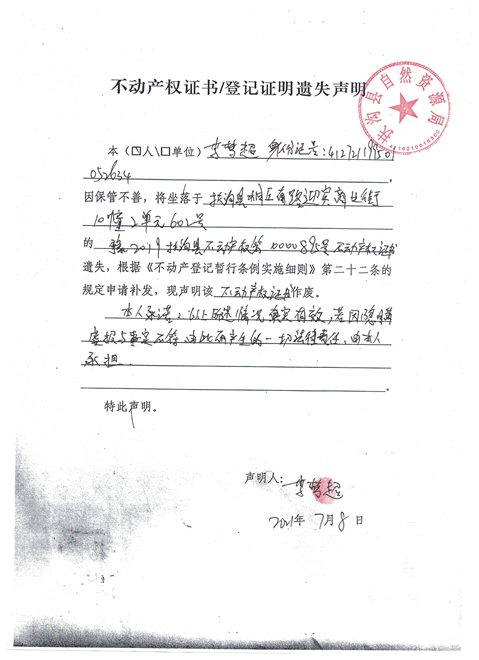 不动产权证书/登记证明遗失声明
扶沟县自然资源局
本(☑人\口单位)李梦超 身份证号:
因保管不善,将坐落于扶沟县 路迎宾商业街
10幢2单元602号
的 豫2019扶沟县不动产权第 号不动产权证书
遗失,根据《不动产登记暂行条例实施细则》第二十二条的
规定申请补发,现声明该 不动产权证书作废。
本人承诺:以上所述情况真实有效,若因隐瞒
虚报与事实不符,由此而产生的一切法律责任,由本人
承担.
特此声明。
声明人:李梦超
2021年7月8日